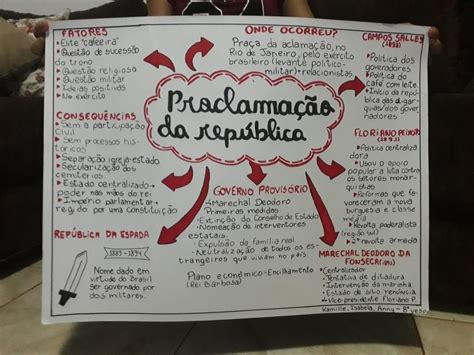 FATORES
• Elite "cafeeira"
• Questão de sucessão
do trono
• Questão religiosa
• Questão militar
• Ideias positivas
• No exército
CONSEQUÊNCIAS
• Sem a participação
Civil
• Sem processos his-
tóricos
• Separação igreja-estado
• Secularização dos
cemitérios
• Estado centralizado
poder nas mãos do rei
• Império parlamentar-
regido por uma Constituição
REPÚBLICA DA ESPADA
1889-1894
Nome dado em
virtude do Brasil
Ser governado por
dois militares.
ONDE OCORREU?
Praça da aclamação, no
Rio de Janeiro, pelo exército
brasileiro (levante político-
militar)
Proclamação
da república
GOVERNO PROVISÓRIO
Marechal Deodoro
Primeiras medidas
• Extinção do Conselho de Estado
• Nomeação de interventores
estatais.
• Expulsão da família real
• Neutralização de todos os es-
trangeiros que viviam no país.
Plano econômico-Encilhamento
(Rui Barbosa)
CAMPOS SALLES
• Política dos
governadores
• Política do
café com leite
• Início da repú
blica das oligar-
FLORIANO PEIXOTO
• Política centraliza
dora
• Usou o apoio
popular p/ luta contra
os setores monar-
quistas
• Reformas que fa-
voreceram a nova
burguesia e classe
média
• Revolta
• 2ª revolta armada
MARECHAL DEODORO DA
FONSECA
• Centralizador
• Tentativa de ditadura
• Intervenção da marinha
• Estado de sítio renúncia
• Vice-presidente Floriano P.
Kamille, Isabela, Anny - 8º